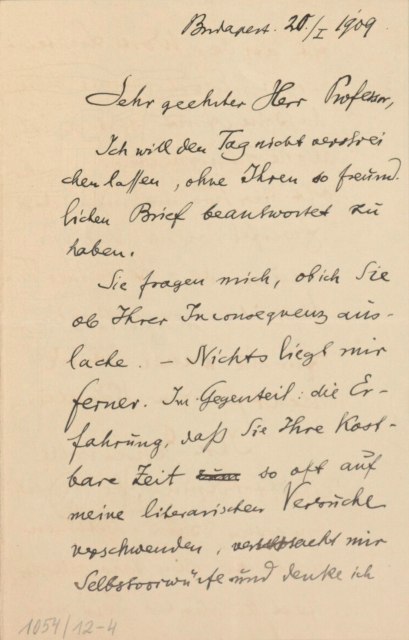 Budapest. 20./I 1909
Sehr geehrter Herr Professor,
Ich will den Tag nicht verstrei
chen lassen, ohne Ihren so freund-
lichen Brief beantwortet zu
haben.
Sie fragen mich, ob ich Sie
ob Ihrer Inconsequenz aus-
lache. – Nichts liegt mir
ferner. Im Gegenteil: die Er-
fahrung, daß Sie Ihre Kost-
bare Zeit so oft auf
meine literarischen Versuche
verschwenden, verursacht mir
Selbstvorwürfe und denke ich
1054/12-4